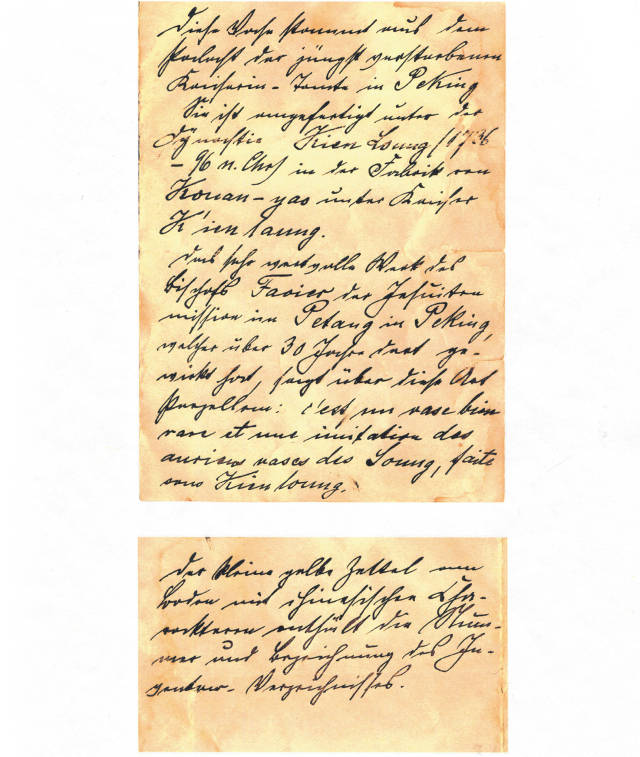 Diese Vase stammt aus dem
Palast der jüngst verstorbenen
Kaiserin-Tante in Peking
Sie ist angefertigt unter der
Dynastie Kien Loung (1736
- 96 n. Chr) in der Fabrik von
Kouan-yao unter Kaiser
K'ien laung.
Das sehr wertvolle Werk des
Bischofs Favier der Jesuiten
mission im Petang in Peking,
welcher über 30 Jahre dort ge-
wirkt hat, sagt über diese Art
Porzellan: c'est un vase bien
rare et une imitation des
anciens vases des Soung, faite
sous Kien loung.
Der kleine gelbe Zettel am
Boden mit chinesischen Cha-
rackteren enthält die Num-
mer und Bezeichnung des In-
ventar-Verzeichnisses.